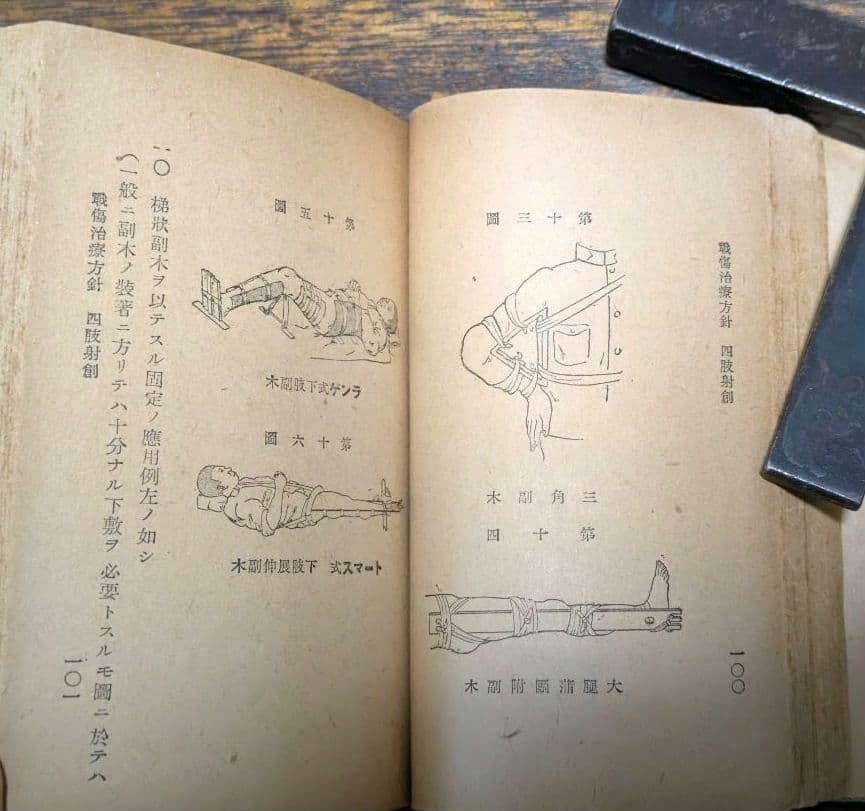 戰傷治療方針 四肢射創
第十三圖
三角副木
第十四
大腿蒲團附副木
一〇〇
第十五圖
ランゲ式下肢副木
第十六圖
トーマス式 下肢展伸副木
一〇 梯狀副木ヲ以テスル固定ノ應用例左ノ如シ
(一般ニ副木ノ裝著ニ方リテハ十分ナル下敷ヲ必要トスルモ圖ニ於テハ
戰傷治療方針 四肢射創
一〇一